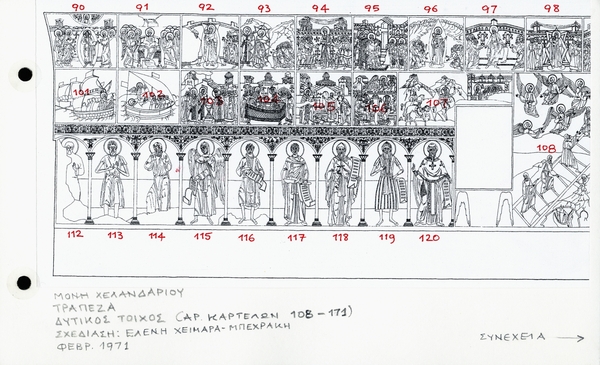 90 91 92 93 94 95 96 97 98
101 102 103 104 105 106 107
108
112 113 114 115 116 117 118 119 120
ΜΟΝΗ ΧΕΛΑΝΔΑΡΙΟΥ
ΤΡΑΠΕΖΑ
ΔΥΤΙΚΟΣ ΤΟΙΧΟΣ (ΑΡ. ΚΑΡΤΕΛΩΝ 108-171)
ΣΧΕΔΙΑΣΗ: ΕΛΕΝΗ ΧΕΙΜΑΡΑ-ΜΠΕΧΡΑΚΗ
ΦΕΒΡ. 1971
ΣΥΝΕΧΕΙΑ →